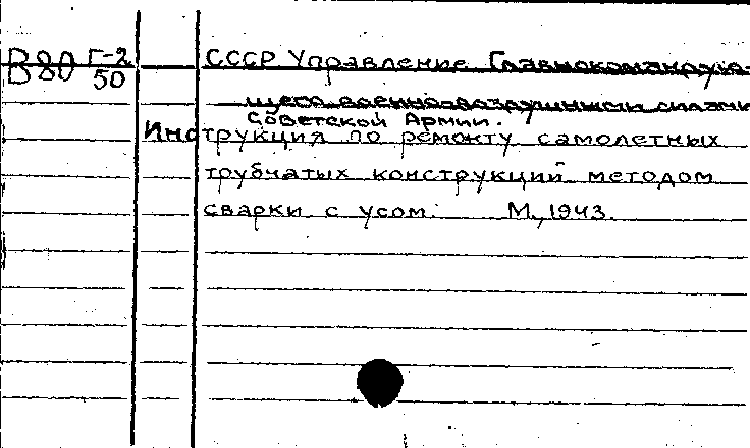 В80 Г-2/50
СССР Управление Главнокомандую-
щего военно-воздушными силами
Советской Армии.
Инструкция по ремонту самолетных
трубчатых конструкций методом
сварки с усом. М., 1943.